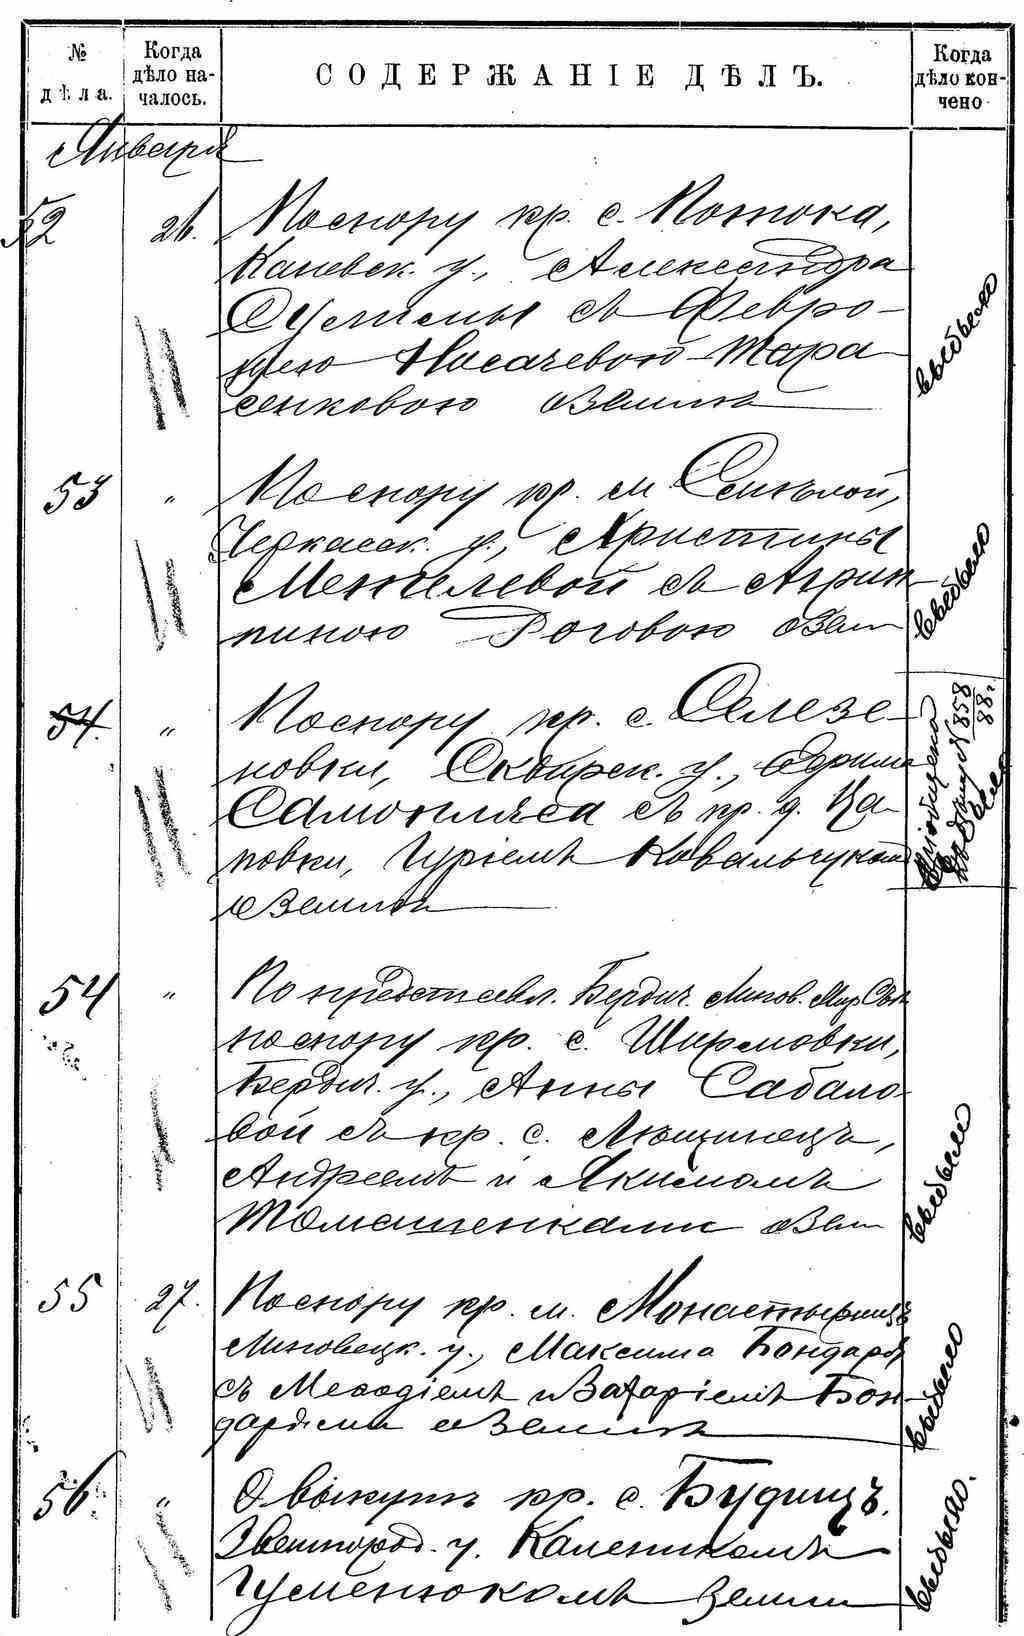 № дѣла.
Когда дѣло на-
чалось.
СОДЕРЖАНІЕ ДѢЛЪ.
Когда дѣло кон-
чено
Января
52 26. По спору кр. с. Потока,
Каневск. у., Александра
Сулимы съ Февро-
ніею Носачевою-Тара
сенковою о землѣ
53 " По спору кр. м
Черкасск. у., Христины
съ Агрип
пиною Роговою о зем
54. " По спору кр. с. Селезе-
новки, Сквирск. у., Ефима
Самопляса съ кр. д. Ца-
повки, Гуріемъ Ковальчукомъ
о землѣ
Пріобщено
къ дѣлу N 858
88 г.
54 " По представл. Бердич. Липов. Мир Съѣ
по спору кр. с. Ширмовки,
Бердич. у., Анны Сабало-
вой съ кр. с.
Андреемъ и Якимомъ
Томашенками о зем
55 27. По спору кр. м. Монастырищъ
Липовецк. у., Максима Бондаря
съ Меѳодіемъ и Захаріемъ Бон-
дарями о землѣ
56. " О выкупѣ кр. с. Будищъ,
Звенигород. у. Калеником
Гуменюкомъ земли